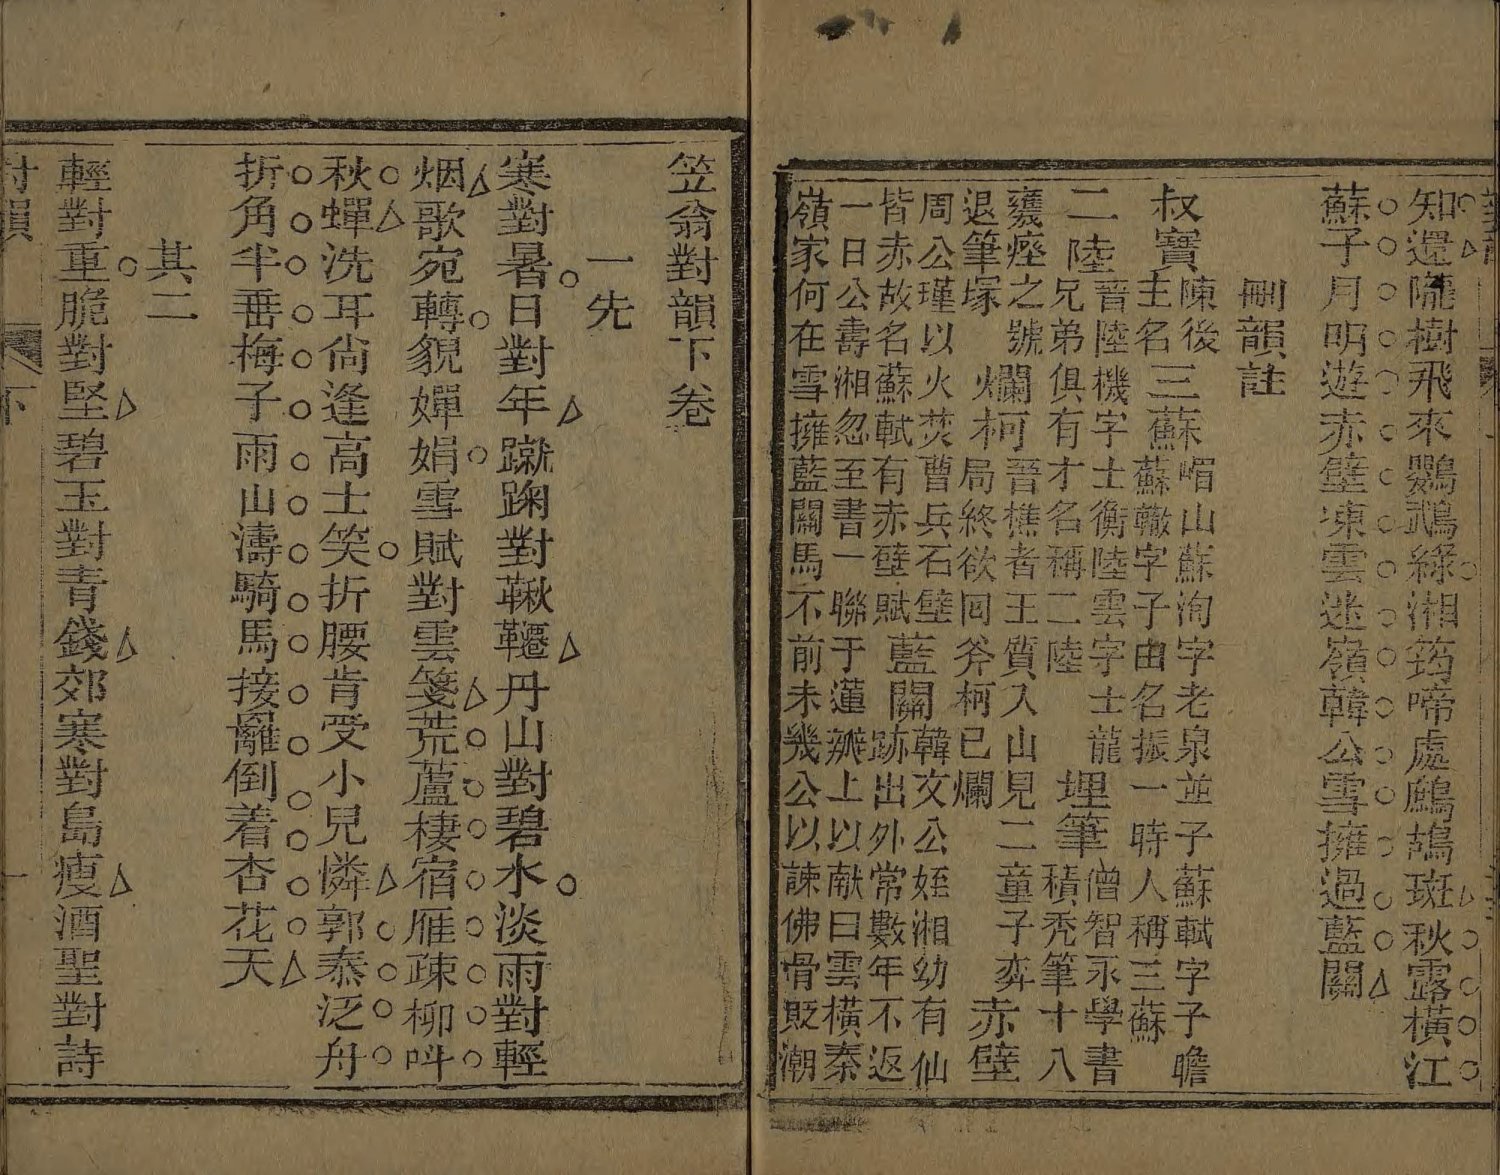 知還隴樹飛來鸚鵡綠湘筠啼處鷓鴣斑秋露橫江
蘇子月明遊赤壁凍雲迷嶺韓公雪擁過藍關
刪韻註
叔寶 陳後主名 三蘇 嵋山蘇洵字老泉並子蘇軾字子瞻蘇轍字子由名振一時人稱三蘇
二陸 晉陸機字士衡陸雲字士龍兄弟俱有才名稱二陸 埋筆 僧智永學書積秃筆十八
甕瘞之號退筆塚 爛柯 晉樵者王質入山見二童子弈局終欲囘斧柯已爛 赤壁
周公瑾以火焚曹兵石壁皆赤故名蘇軾有赤壁賦 藍關 韓文公姪湘幼有仙跡出外常數年不返
一日公壽湘忽至書一聯于蓮瓣上以献曰雲橫秦
嶺家何在雪擁藍關馬不前未幾公以諫佛骨貶潮
笠翁對韻下卷
一先
寒對暑日對年蹴踘對鞦韆丹山對碧水淡雨對輕
烟歌宛轉貌嬋娟雪賦對雲箋荒蘆棲宿雁疎柳呌
秋蟬洗耳尙逢高士笑折腰肯受小兒憐郭泰泛舟
折角半垂梅子雨山濤騎馬接䍦倒着杏花天
其二
輕對重脆對堅碧玉對青錢郊寒對島瘦酒聖對詩
對韻 下 一